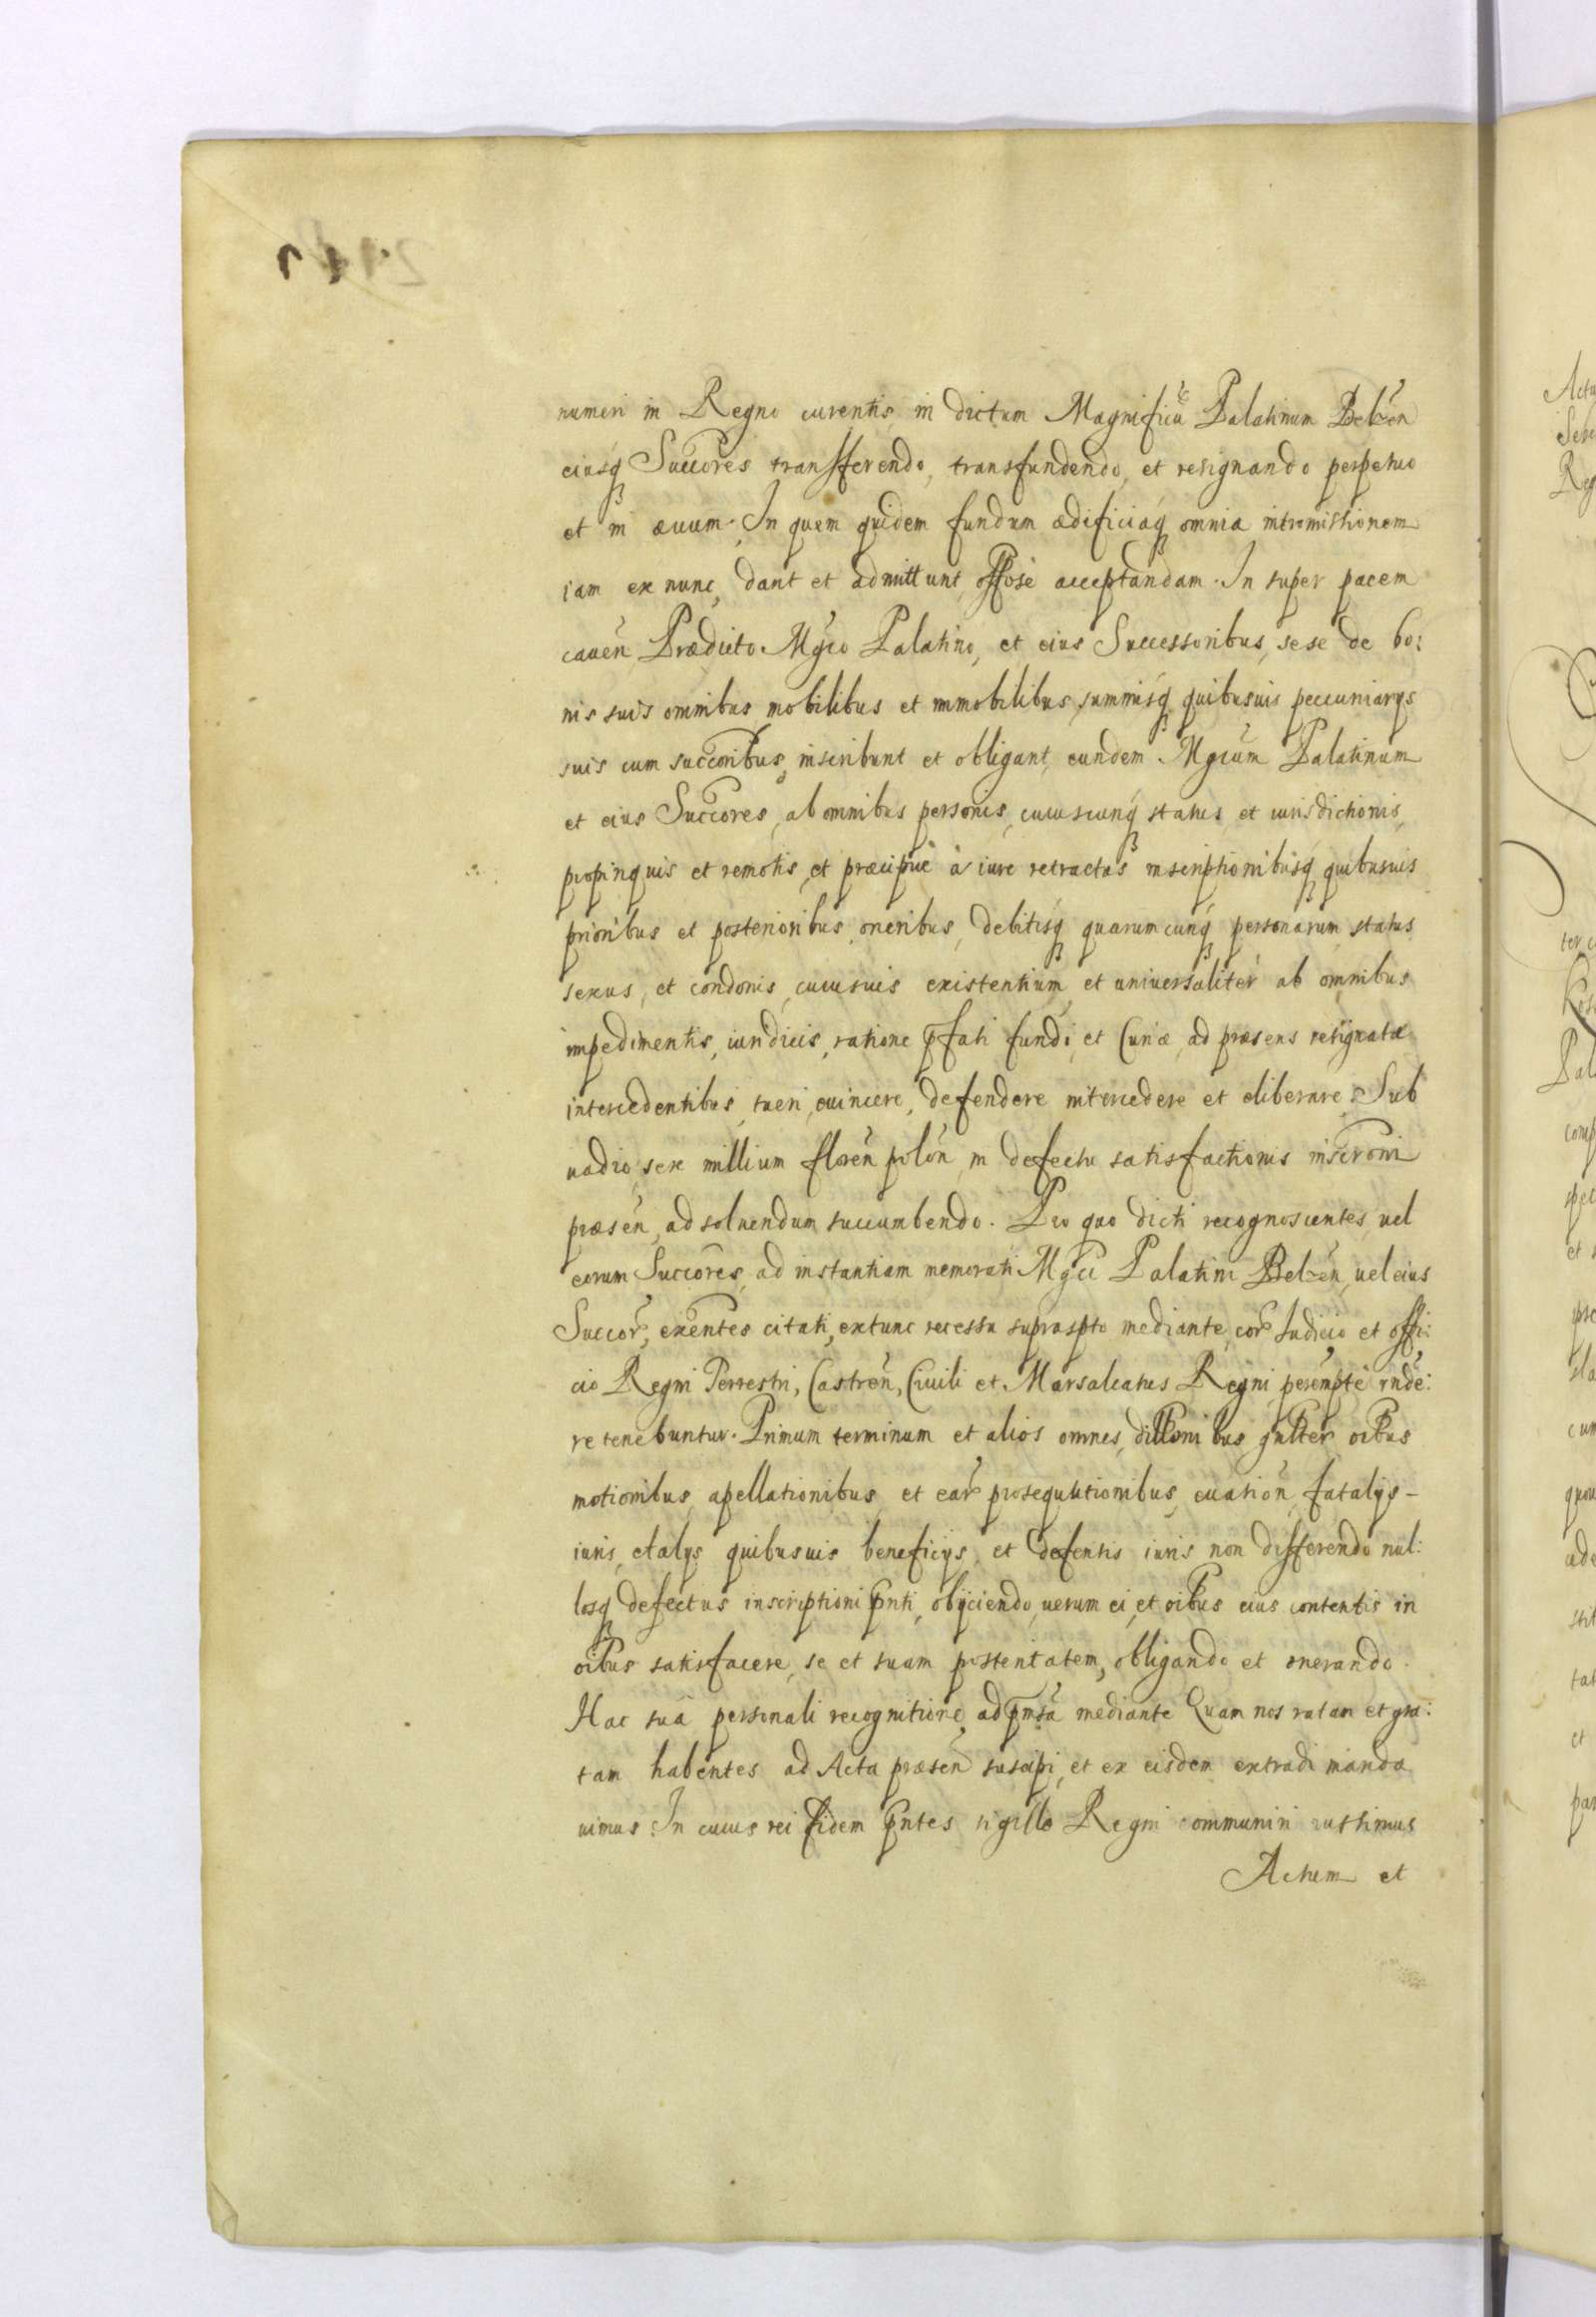 numeri in Regno curentis, in dictum Magnificũ Palatinum Belzeñ
eiusq̃ Succores transfferendo, transfundendo, et resignando perpetuo
et in æuum. In quem quidem fundum ædificiaq̃ omnia intromissionem
iam ex nunc, dant et admittunt, offõsè acceptandam. In super pacem
caueñ Prædicto Mgco Palatino, et eius Successoribus, sese de bo:
nis suis omnibus mobilibus et immobilibus, summisq̃ quibusuis pecuniarys
suis cum succoribus, inscribunt et obligant, eundem Mgcum Palatinum
et eius Succores, ab omnibus personis, cuiuscunq̃ status et iurisdictionis,
propinquis et remotis, et præcipuè à iure retractus inscriptionibusq̃ quibusuis
prioribus et posterioribus, oneribus, debitisq̃ quarumcunq̃ personarum, status
sexus, et condonis, cuiusuis existentium, et uniuersalitèr ab omnibus
impedimentis, iuridicis, ratione p̃fati fundi, et Curiæ, ad præsens resignatæ
intercedentibus, tueri, euincere, defendere intercedere et eliberare. Sub
uadio, sex millium floreñ poloñ, in defectu satisfactionis inscroni
præseñ, ad soluendum succumbendo. Pro quo dicti recognoscentes, uel
eorum Succores, ad instantiam memorati Mgci Palatini Belzeñ, uel eius
Succor, exentes citati, extunc recessu suprasp̃to mediante, cor Iudicio et offi:
cio Regni Terrestri, Castreñ, Ciuili et Marsalcatus Regni, peremptè rnde:
re tenebuntur. Primum terminum et alios omnes, dillonibus gnlter oibus
motionibus, apellationibus, et ear prosequutionibus, euatioñ, fatalijs-
iuris, et alijs quibusuis beneficijs, et defentis iuris non differendo nul:
losq̃ defectus inscriptioni p̃nti, obijciendo, uerum ei, et oibus eius contentis in
oibus satisfacere, se et suam posteritatem, obligando et onerando.
Hac suâ personali recognitione, ad p̃mssa mediante Quam nos ratam et gra:
tam habentes ad Acta præseñ suscipi, et ex eisdem extradi manda
uimus. In cuius rei fidem p̃ntes sigillo Regni communiri iussimus
Actum et